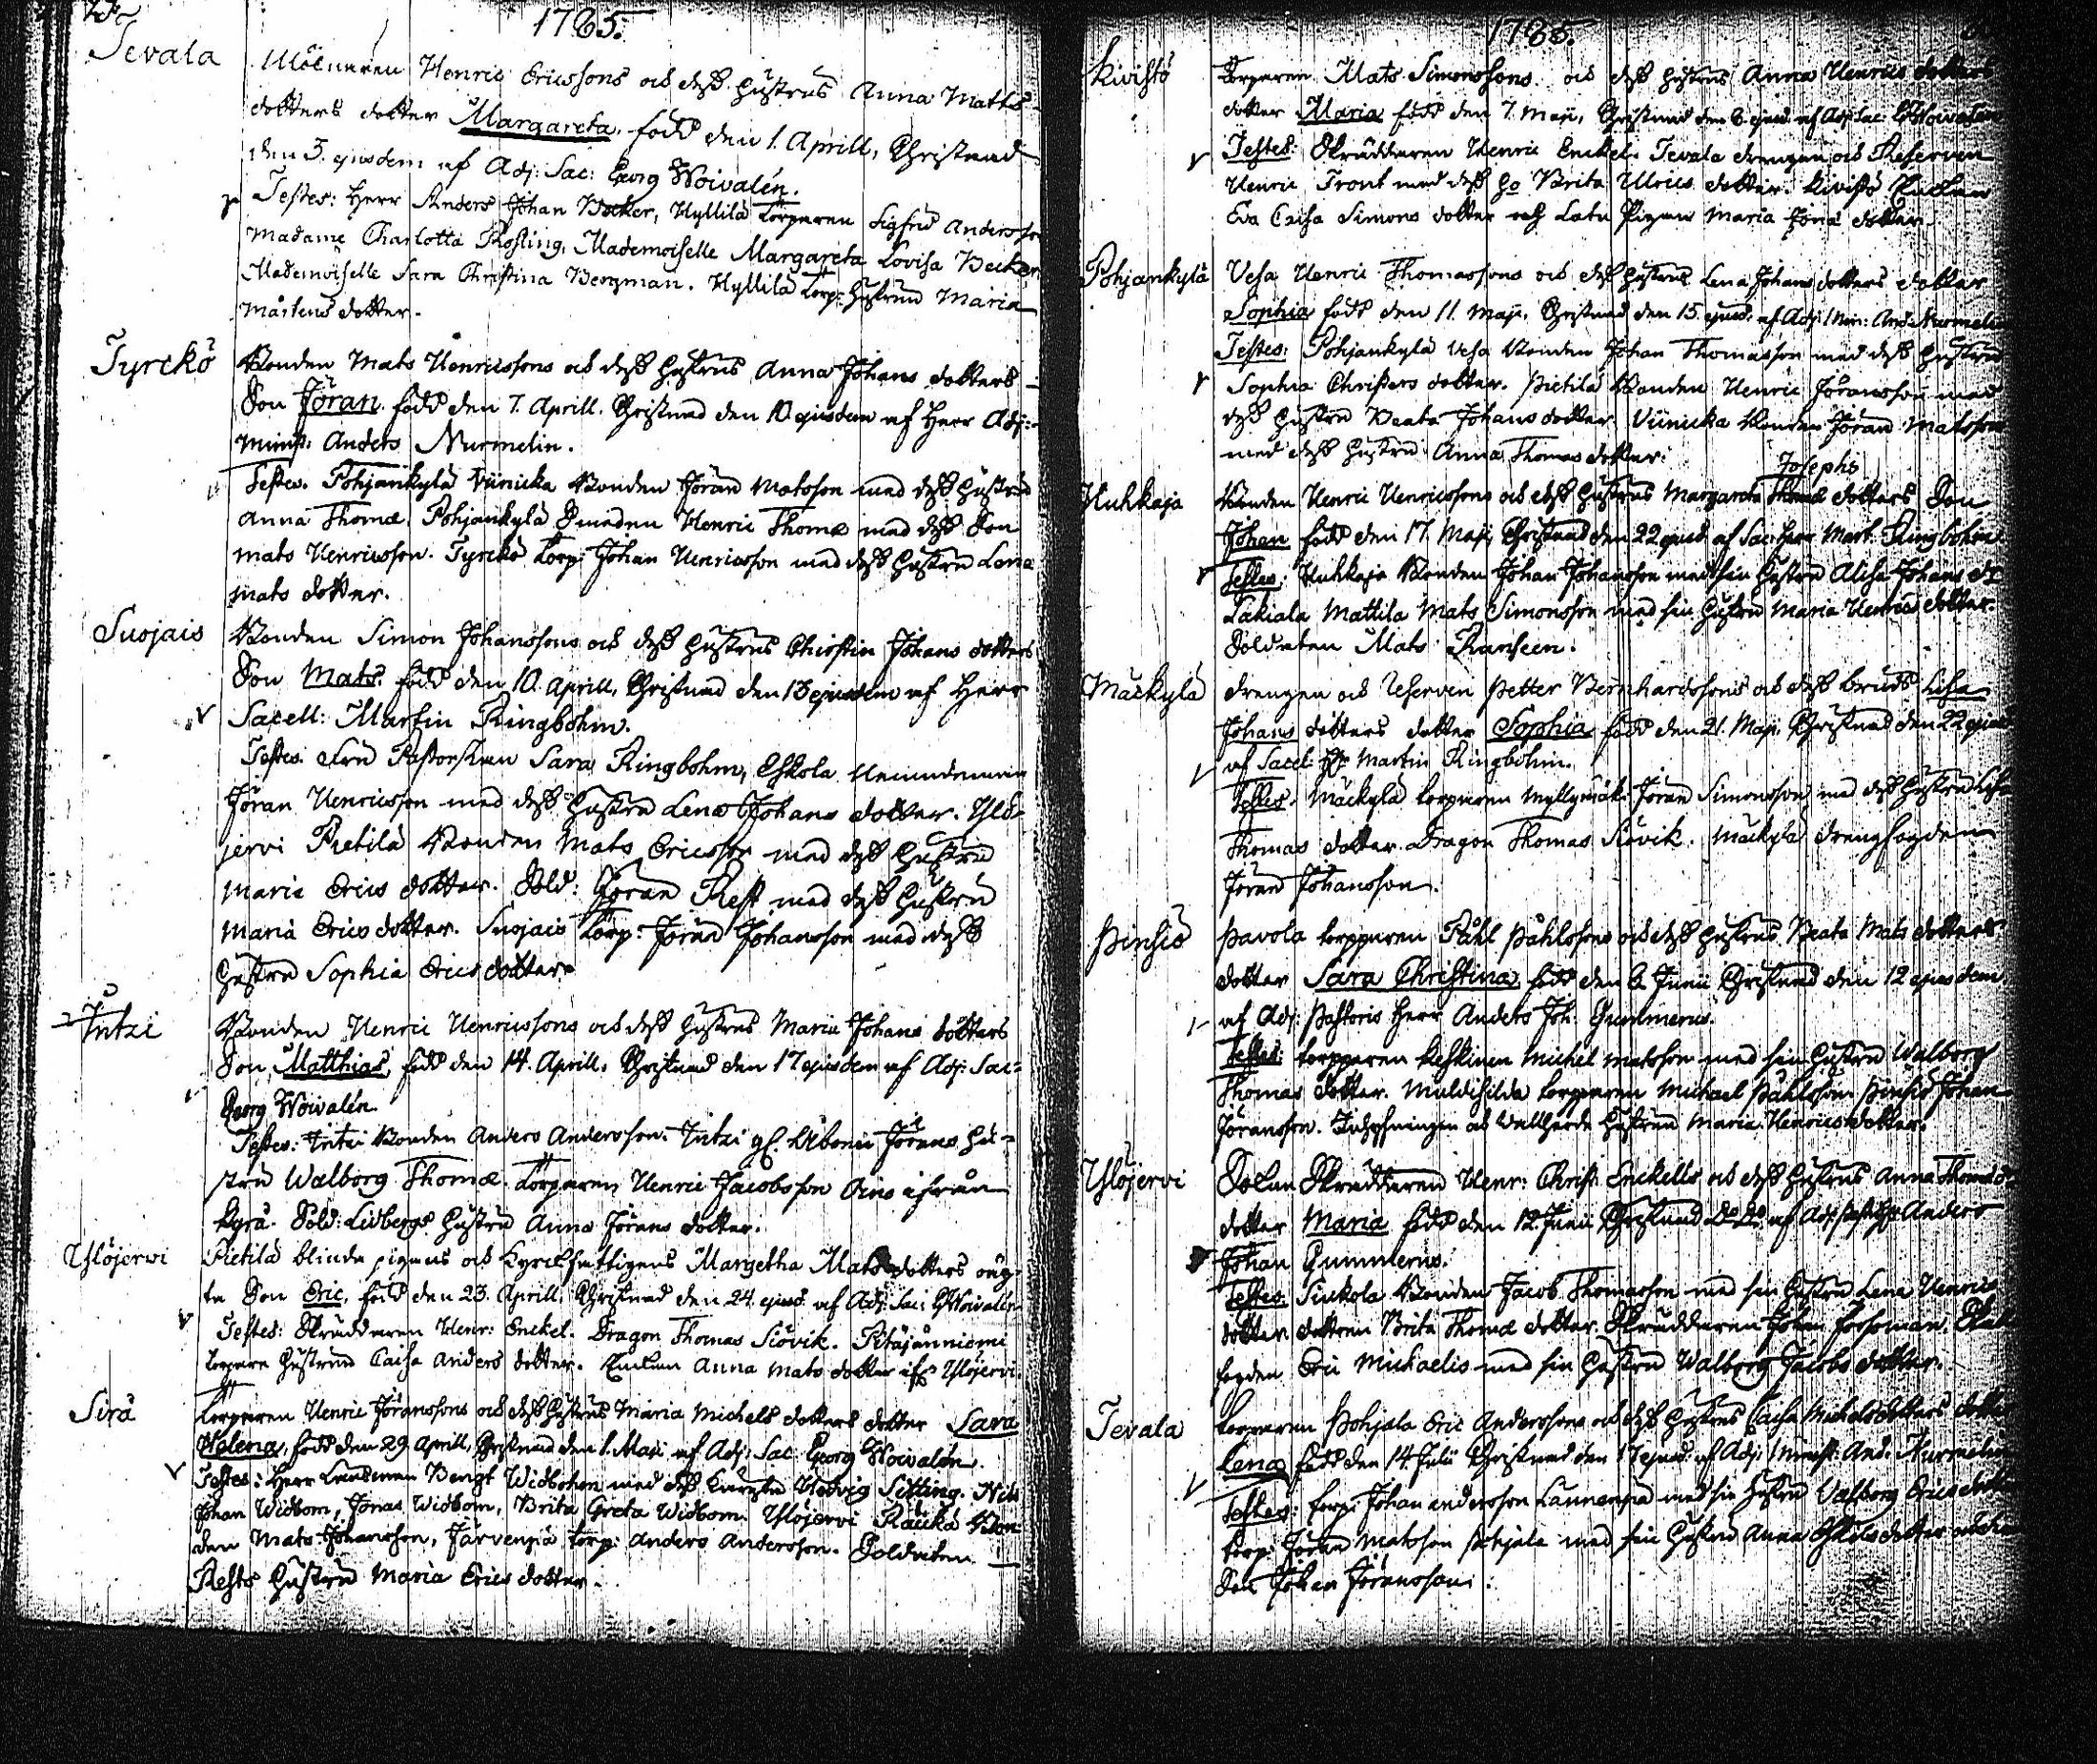 1785.
Tevala
Mölnaren Henric Ericssons och dess Hustrus Anna Matts
dotters dotter Margareta. född den 1. Aprill, Christnad
den 3. ejusdem af Adj: Sac: Georg Woivalén.
Testes: Herr Anders Johan Becker, Hyllilä Torparen Sigfrid Andersson
Madame Charlotta Rosling, Mademoiselle Margareta Lovisa Becker
Mademoiselle Sara Christina Bergman. Hyllilä Torp: Hustrun Maria
Mårtens dotter.
Tyrckö
Bonden Mats Henricssons och dess Hustrus Anna Johans dotters
Son Jöran. född den 7. Aprill. Christnad den 10 ejusdem af Herr Adj:
minist: Anders Nurmelin.
Testes. Pohjankylä Viinicka Bonden Jöran Matsson med dess Hustru
Anna Thomæ. Pohjankylä Smeden Henric Thomæ med dess Son
mats Henricsson. Tyrckö Torp: Johan Henricsson med dess Hustru Lena
mats dotter.
Suojais
Bonden Simon Johanssons och dess Hustrus Christin Johans dotters
Son Mats. född den 10. Aprill, Christnad den 13 ejusdem af Herr
Sacell: Martin Ringbohm.
Testes. Fru Pastorskan Sara Ringbohm, Eskola Nämndeman
Jöran Henricsson med dess Hustru Lena Johans dotter. Ylö-
jervi Pietilä Bonden Mats Ericsson med dess Hustru
Maria Erics dotter. Sold: Jöran Rest med dess Hustru
Maria Erics dotter. Suojais Torp: Jöran Johansson med dess
Hustru Sophia Erics dotter.
Intzi
Bonden Henric Henricssons och dess Hustrus Maria Johans dotters
Son Matthias, född den 14. Aprill, Christnad den 17 ejusdem af Adj: Sac:
Georg Woivalén.
Testes: Intzi Bonden Anders Andersson. Intzi Jörans Hu-
stru Walborg Thomæ. Torparen Henric Jacobsson ifrån
Kyrö. Sold: Lidbergs Hustru Anna Jörans dotter.
Ylöjerwi
Pietilä blinda pigans och Kyrckfattigens Margetha Mats dotters oäg-
ta Son Eric, född den 23. Aprill. Christnad den 24. ejusd: af Adj: Sac: G Woivalén
Testes: Skräddaren Henr: Enckel. Dragon Thomas Siövik. Pitäjänniemi
torpare Hustrun Caisa Anders dotter. Anna Mats dotter Ylöjervi.
Sirå
Torparen Henric Jöranssons och dess Hustrus Maria Michels dotters dotter Sara
Helena, född den 29 Aprill, Christnad den 1. Maji af Adj: Sac: Georg Woivalén.
Testes: Herr Länsman Bengt Widbohm med dess Hedvig Sitting.
Johan Widbom, Jonas Widbom, Brita Greta Widbom. Ylöjervi Räickä Bon-
den Mats Johansson, Järvenpä torp: Anders Andersson. Soldaten
Rests Hustru Maria Erics dotter.
1785.
Kivistö
Torparen Mats Simonssons och dess Hustrus Anna Henrics dotters
dotter Maria född den 7. Maji, Christnad den 8 ejusd af Adj: Sac: G Woivalén
Testes: Skräddaren Henric Enckel. Tevala drengen och Reserven
Henric Front med dess Ho Brita Ulrics dotter. Kivistö
Eva Caisa Simons dotter och Pigan Maria Jöns dotter.
Pohjankylä
Vesa Henric Thomassons och dess Hustrus Lena Johans dotters dotter
Sophia född den 11. Maji. Christnad den 15. ejusd. af Adj: Min: And. Nurmelin
Testes: Pohjankylä Vesa Bonden Johan Thomasson med dess Hustru
Sophia Christers dotter. Pietilä Bonden Henric Jöransson med
dess Hustru Beata Johans dotter. Viinicka Bonden Jöran Matsson
med dess Hustru Anna Thomas dotter.
Josephs
Huhkaja
Bonden Henric Henricssons och dess Hustrus Margareta Thomæ dotters Son
Johan född den 17. Maji, Christnad den 22 ejusd af Sac: Herr Mart: Ringbohm
Testes: Huhkaja Bonden Johan Johansson med sin Hustru Alisa Johans dr
Lakiala Mattila Mats Simonsson med sin Hustru Maria Henrics dotter.
Soldaten Mats Ranseen.
Mäckylä
drengen och Reserven Petter Bernhardssons och dess bruds Lisa
Johans dotters dotter Sophia född den 21. Maji, Christnad den 22 ejusd
af Sacel: Hr Martin Ringbohm.
Testes. Mäckylä torparen Myllymäk: Jöran Simonsson med dess Hustru Lisa
Thomas dotter. Dragon Thomas Siövik. Mäckylä drengfogden
Jöran Johansson.
Pinsiö
Pavola torparen Påhl Påhlssons och dess Hustrus Beata Mats dotters
dotter Sara Christina född den 6 Junii Christnad den 12 ejusdem
af Adj: Pastoris Herr Anders Joh: Gummerus.
Testes: torparen Keskinen Michel Matsson med sin Hustru Walborg
Thomas dotter. torparen Michael Påhlsson. Pinsiö Johan
Jöransson. Hustrun Maria Henrics dotter.
Ylöjervi
Skräddaren Henr: Christ: Enckells och dess Hustrus Anna Thomæ
dotter Maria född den 12 Junii Christnad Do Do af Adj: Past: Hr Anders
Johan Gummerus.
Testes. Siukola Bonden Jacob Thomasson med sin Hustru Lena Henrics
dotter. Brita Thomæ dotter. Skräddaren Johan Forsman.
Eric Michaelis med sin Hustru Walborg Jacobs dotter.
Tevala
torparen Pohjala Eric Anderssons och dess Hustrus Caisa Michelsdotters dotter
Lena född den 14 Julii Christnad den 17 ejusd: af Adj: Minist: And: Nurmelin
Testes: torp: Johan Andersson Lannenpä med sin Hustru Valborg Erics dotter
torp: Jöran Matsson Pohjala med sin Hustru Anna Eskils dotter
Son Johan Jöransson.